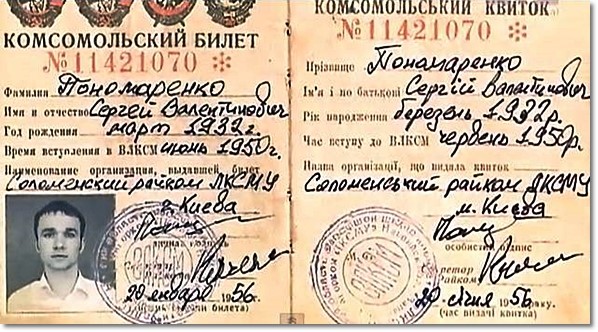 КОМСОМОЛЬСКИЙ БИЛЕТ
№ 11421070
Фамилия Пономаренко
Имя и отчество Сергей Валентинович
Год рождения март 1932 г.
Время вступления в ВЛКСМ июнь 1950 г.
Наименование организации, выдавшей билет
Соломенский райком ЛКСМУ
г. Киева
20 января 1956 г.
КОМСОМОЛЬСЬКИЙ КВИТОК
№ 11421070
Прізвище Пономаренко
Ім'я і по батькові Сергій Валентинович
Рік народження березень 1932 р.
Час вступу до ВЛКСМ червень 1950 р.
Назва організації, що видала квиток
Соломенський райком ЛКСМУ
м. Києва
особистий підпис
20 січня 1956 року.
(час видачі квитка)